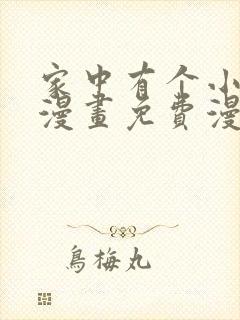 家中有个小
漫畫免費漫
鳥梅丸